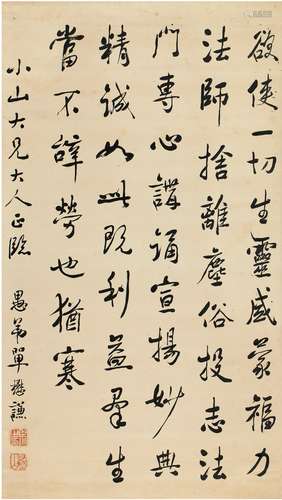 欲使一切生靈咸蒙福力
法師捨離塵俗投志法
門專心講誦宣揚妙典
精誠如此既利益羣生
當不辭勞也猶寒
小山大兄大人正臨
愚弟單懋謙